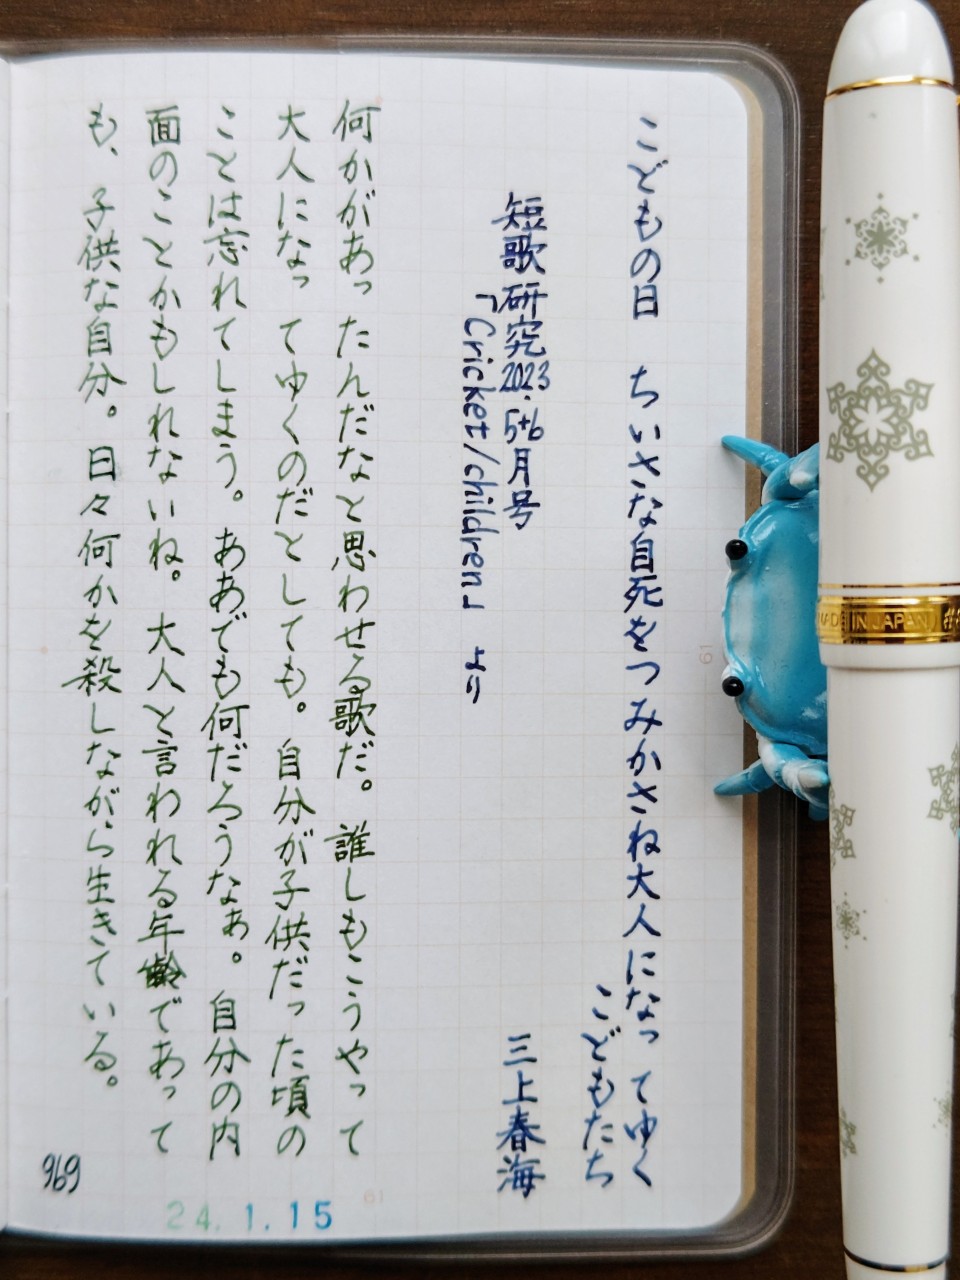 こどもの日　ちいさな自死をつみかさね大人になってゆく
こどもたち
短歌研究2023.5+6月号
「Cricket/children」より
三上春海
何かがあったんだなと思わせる歌だ。誰しもこうやって
大人になってゆくのだとしても。自分が子供だった頃の
ことは忘れてしまう。ああでも何だろうなぁ。自分の内
面のことかもしれないね。大人と言われる年齢であって
も、子供な自分。日々何かを殺しながら生きている。
969
24.1.15
61
61
MADE IN JAPAN